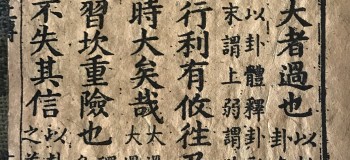 大者過也
以卦體釋卦
末謂上弱謂
行利有攸往
時大矣哉
習坎重險也
不失其信以卦